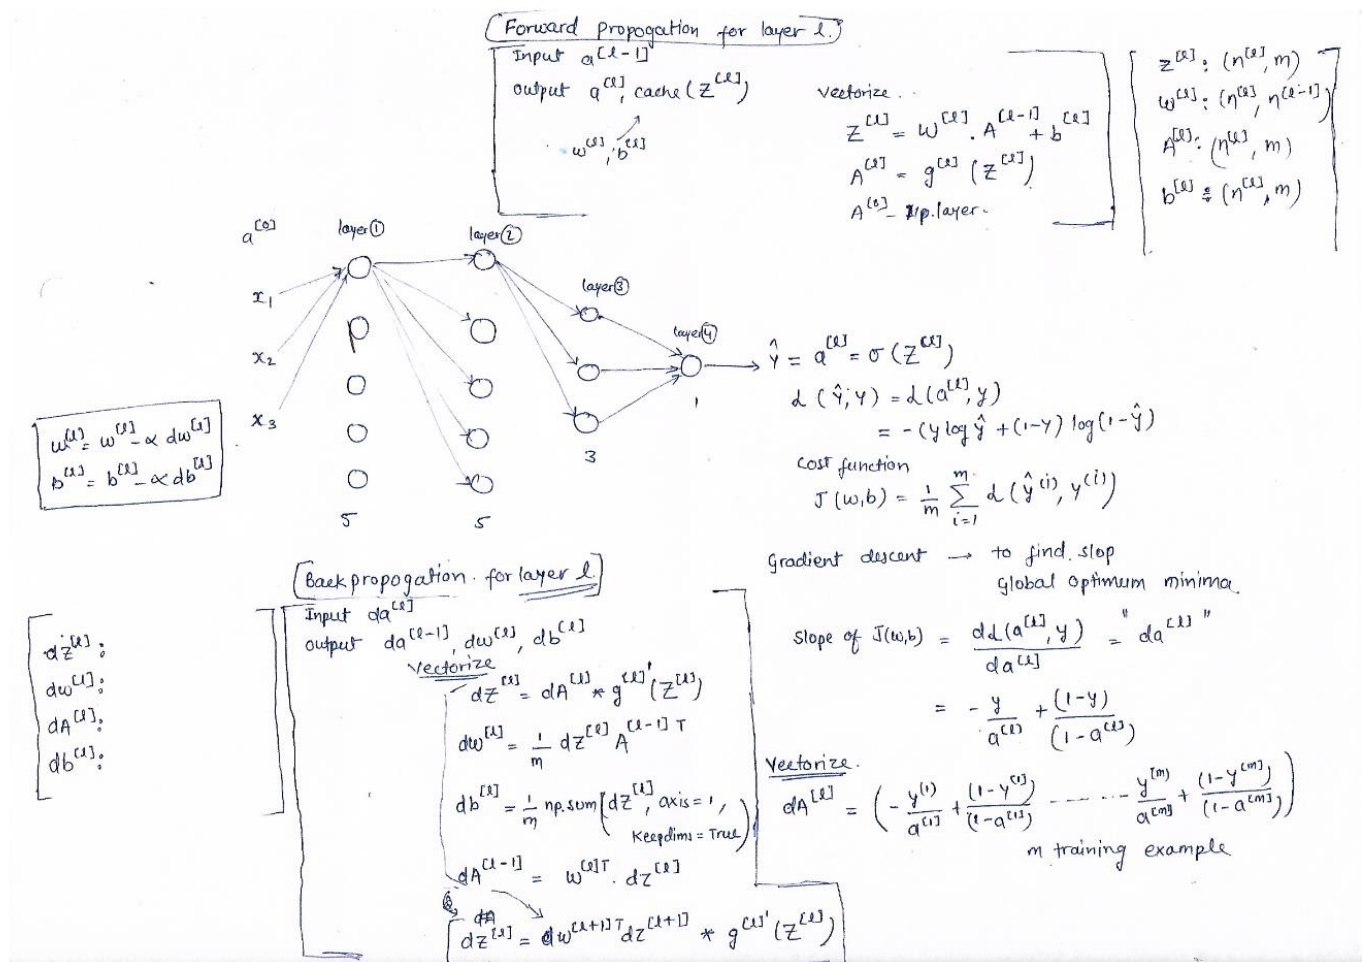 Forward propogation for layer l.
Input a[l-1]
output a[l], cache (Z[l])
w[l], b[l]
Vectorize..
Z[l] = W[l] . A[l-1] + b[l]
A[l] = g[l] (Z[l])
A[0] - I/p. layer.
z[l] : (n[l], m)
w[l] : (n[l], n[l-1])
A[l] : (n[l], m)
b[l] : (n[l], m)
a[0]
layer ①
layer ②
layer ③
layer ④
x1
x2
x3
5
5
3
1
w[l] = w[l] - α dw[l]
b[l] = b[l] - α db[l]
Ŷ = a[l] = σ (Z[l])
L (Ŷ, Y) = L (a[l], y)
= - (y log ŷ + (1-Y) log (1-ŷ)
Cost function
J (w,b) = 1/m Σ i=1 m L (ŷ(i), y(i))
Gradient descent → to find slop
Global optimum minima
Slope of J(w,b) = dL(a[l], y) / da[l] = "da[l]"
= - y/a[l] + (1-y)/(1-a[l])
Vectorize.
dA[l] = (- y(1)/a[1] + (1-y[1])/(1-a[1]) ------- y[m]/a[m] + (1-y[m])/(1-a[m]))
m training example
Back propogation for layer l
Input da[l]
output da[l-1], dw[l], db[l]
Vectorize
dZ[l] = dA[l] * g[l]' (Z[l])
dw[l] = 1/m dZ[l] A[l-1] T
db[l] = 1/m np.sum (dZ[l], axis = 1,
Keepdims = True)
dA[l-1] = w[l]T . dz[l]
dA
dz[l] = dw[l+1]T dz[l+1] * g[l]' (Z[l])
dz[l] :
dw[l] :
dA[l] :
db[l] :